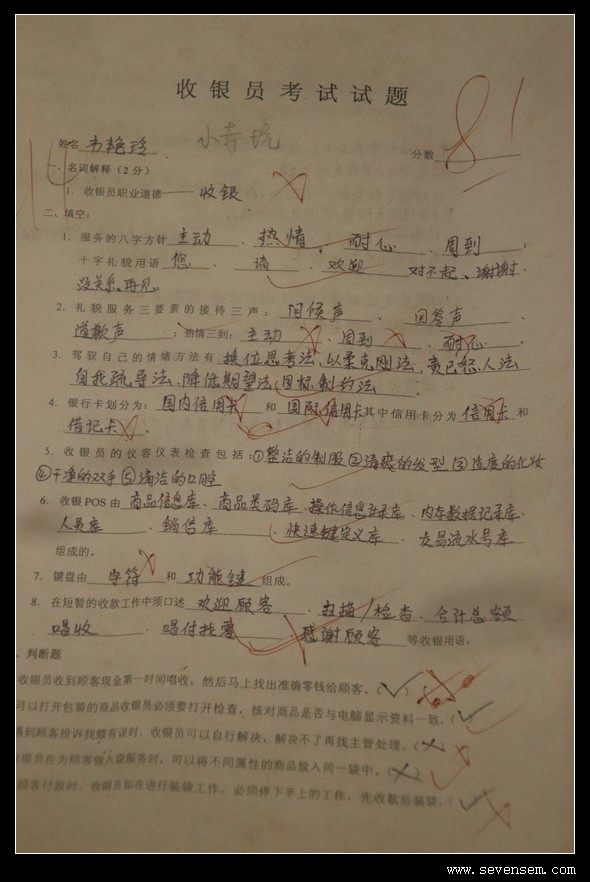 收银员考试试题
姓名 韦艳玲 小寺坑
分数 81
14
一、名词解释（2分）
1. 收银员职业道德——收银
二、填空：
1. 服务的八字方针 主动、热情、耐心、周到；
十字礼貌用语 您、请、欢迎 对不起、谢谢.
没关系、再见.
2. 礼貌服务三要素的接待三声：问候声、回答声、
道歉声；热情三到：主动、周到、耐心.
3. 驾驭自己的情绪方法有 换位思考法、以柔克刚法、责己恕人法
自我疏导法、降低期望法、目标制约法.
4. 银行卡划分为：国内信用卡 和 国际信用卡 其中信用卡分为 信用卡 和
借记卡.
5. 收银员的仪容仪表检查包括：①整洁的制服②清爽的发型③适度的化妆
④干净的双手⑤清洁的口腔
6. 收银POS由 商品信息库、商品类码库、操作信息登录库、内存数据记录库、
人员库、销售库、快速键定义库、交易流水号库
组成的。
7. 键盘由 字符 和 功能键 组成。
8. 在短暂的收款工作中须口述 欢迎顾客、扫描/检查、合计总额
唱收、唱付找零、感谢顾客 等收银用语。
、判断题
收银员收到顾客现金第一时间唱收，然后马上找出准确零钱给顾客。（√）
可以打开包装的商品收银员必须要打开检查，核对商品是否与电脑显示资料一致。（√）
遇到顾客投诉找赎有误时，收银员可以自行解决，解决不了再找主管处理。（×）
收银员在为顾客做入袋服务时，可以将不同属性的商品放入同一袋中。（×）
顾客付款时，收银员如在进行装袋工作，必须停下手上的工作，先收款后装袋。（√）
www.sevensem.com